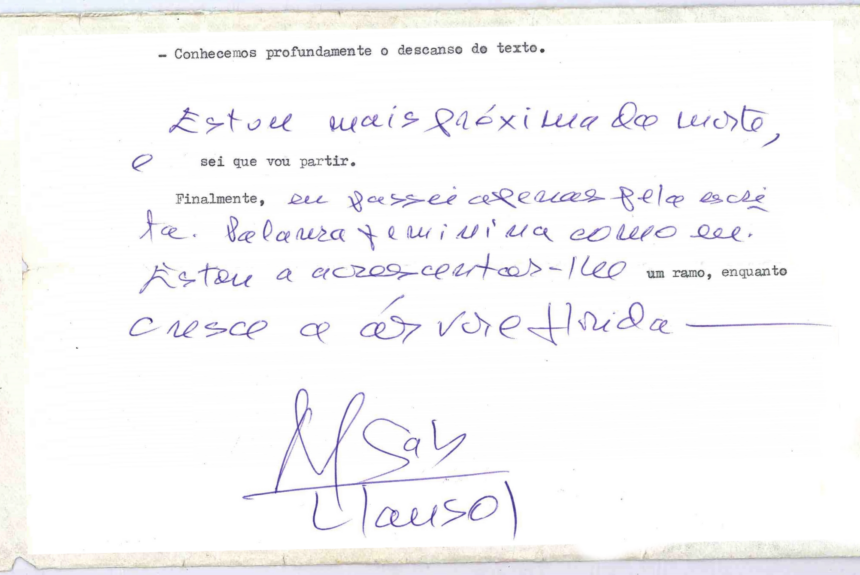 - Conhecemos profundamente o descanso do texto.
Estou mais próxima da morte,
e sei que vou partir.
Finalmente, eu passei apenas pela escri
ta. Palavra feminina como eu.
Estou a acrescentar-lhe um ramo, enquanto
cresce a árvore florida ———
M Gab
Llansol